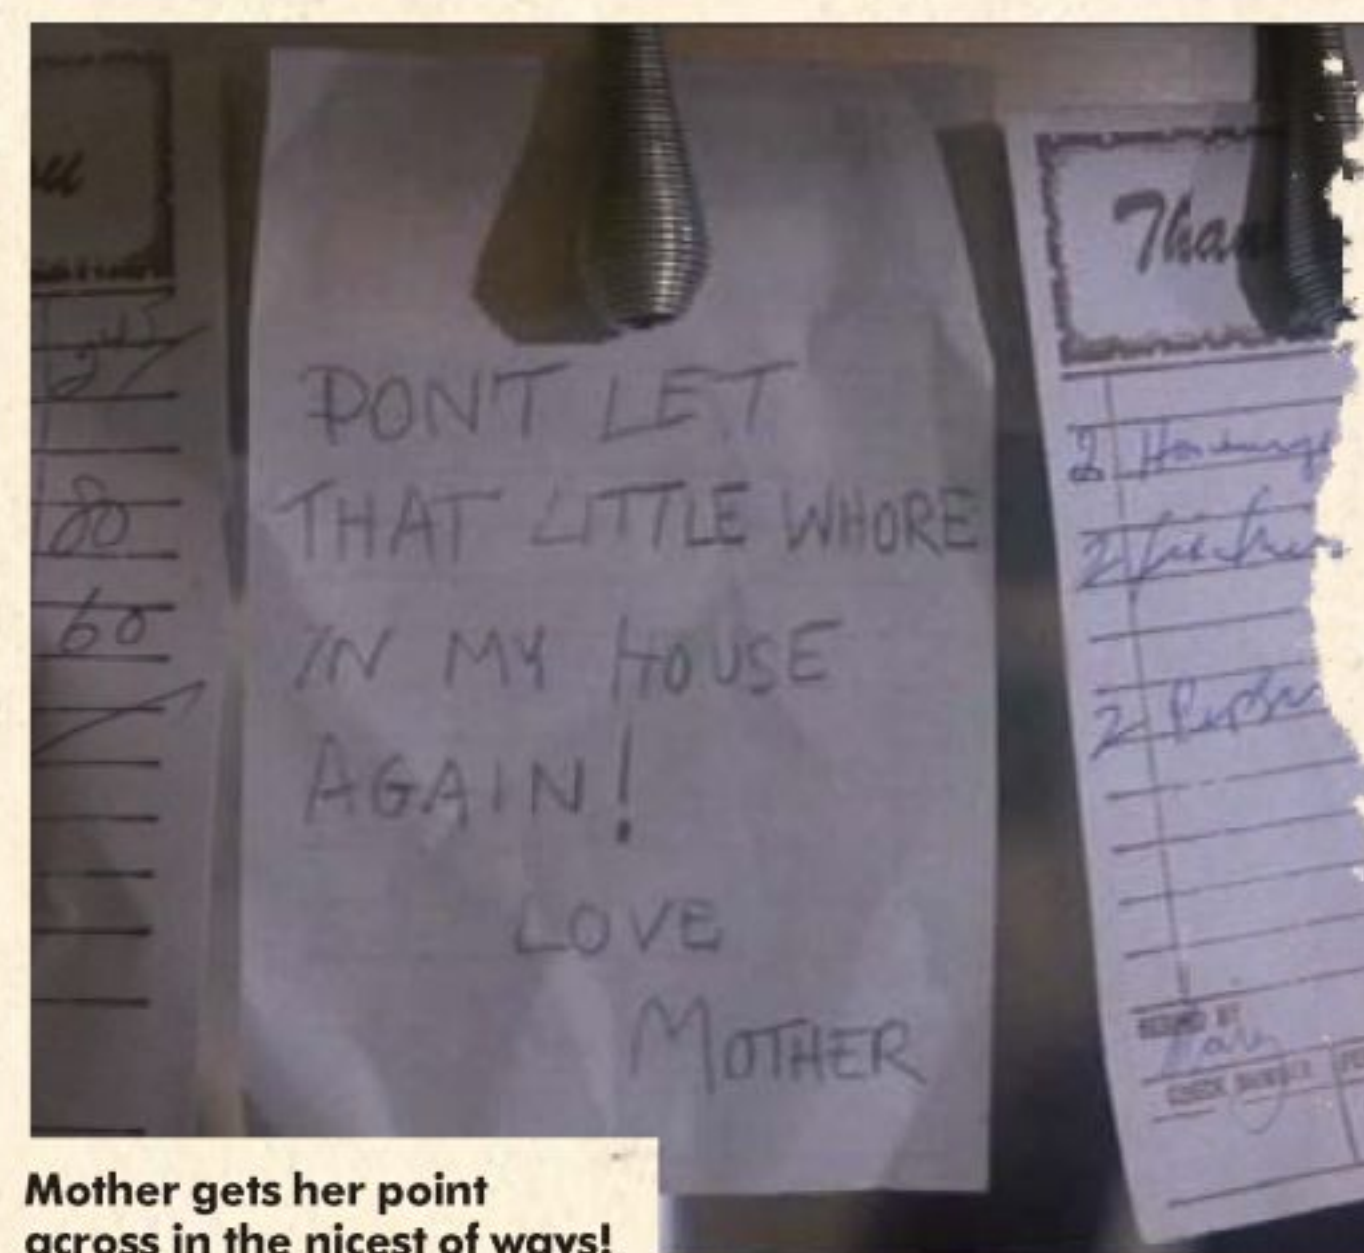 24
80
60
DONT LET
THAT LITTLE WHORE
IN MY HOUSE
AGAIN!
LOVE
MOTHER
2
2
2
Mother gets her point
across in the nicest of ways!